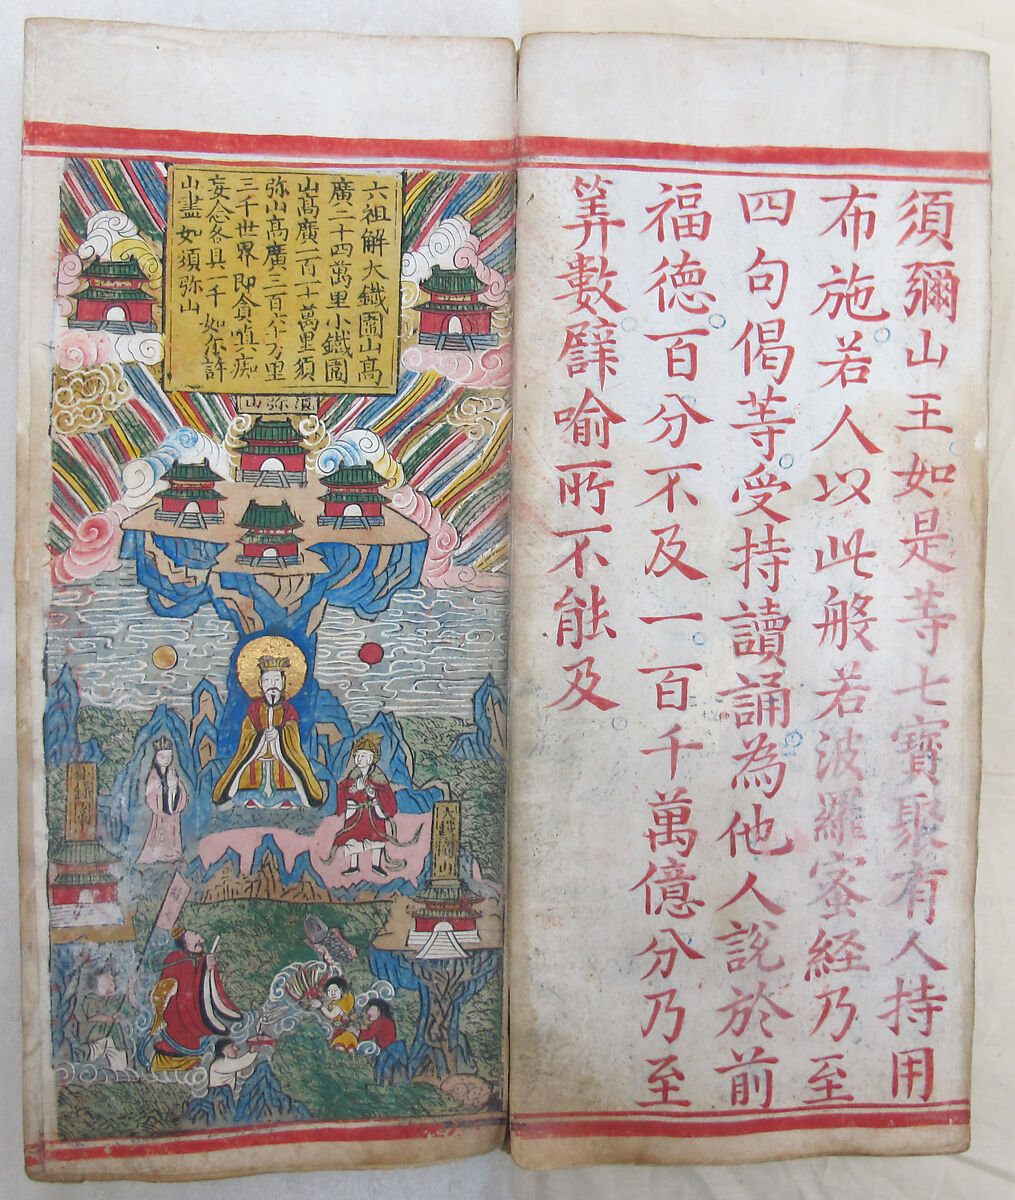 須彌山王如是等七寶聚有人持用
布施若人以此般若波羅蜜経乃至
四句偈等受持讀誦為他人說於前
福德百分不及一百千萬億分乃至
筭數譬喻所不能及
六祖解大鐵圍山高
廣二十四萬里小鐵圍
山高廣一百一十萬里須
弥山高廣三百六十万里
三千世界即貪嗔癡
妄念各具一千如尓許
山盡如須弥山
須弥山
大鐵圍山
小鐵圍山